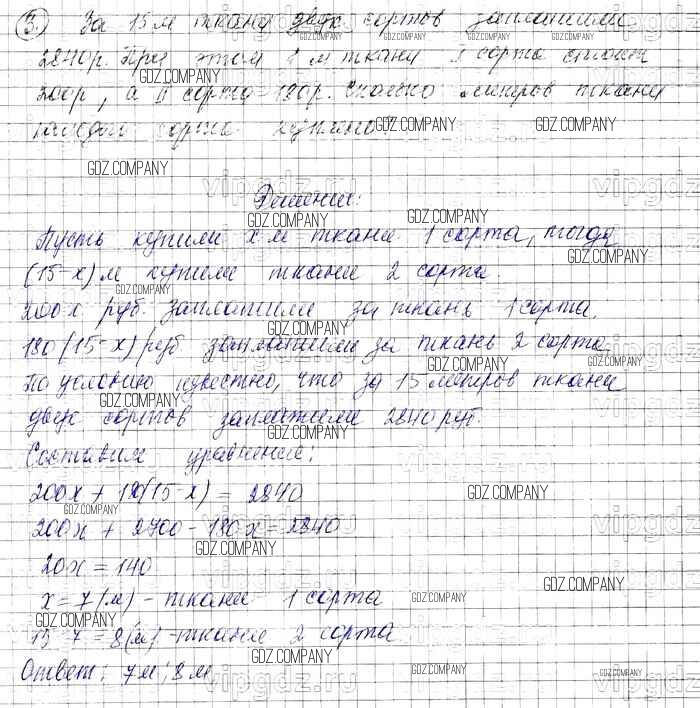 3. За 15 м ткани двух сортов заплатили
2840 р. При этом 1 м ткани I сорта стоит
200р, а II сорта 180р. Сколько метров ткани
каждого сорта куплено?
Решение:
Пусть купили x м ткани 1 сорта, тогда
(15-x) м купили ткани 2 сорта.
200x руб. заплатили за ткань 1 сорта.
180(15-x) руб заплатили за ткань 2 сорта
По условию известно, что за 15 метров ткани
двух сортов заплатили 2840 руб.
Составим уравнение:
200x + 180(15-x) = 2840
200x + 2700 - 180x = 2840
20x = 140
x = 7 (м) - ткани 1 сорта
15-7 = 8 (м) - ткани 2 сорта
Ответ: 7м; 8м
GDZ.COMPANY
vipgdz.ru